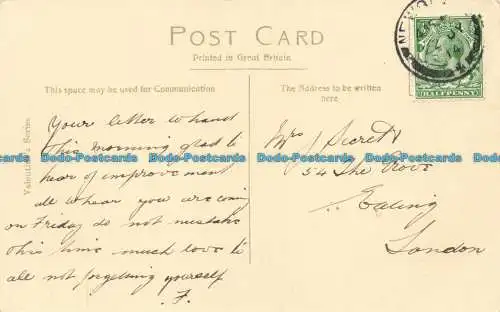 POST CARD
Printed in Great Britain
This space may be used for Communication
The Address to be written
here.
Valentine's Series
HALFPENNY
Your letter to hand
this morning glad to
hear of improvement
all to hear you are coming
on Friday do not mistake
this time much love to
all not forgetting yourself
F.
Mrs J Secrett
54 The Grove
Ealing
London
Dodo-Postcards Dodo-Postcards Dodo-Postcards